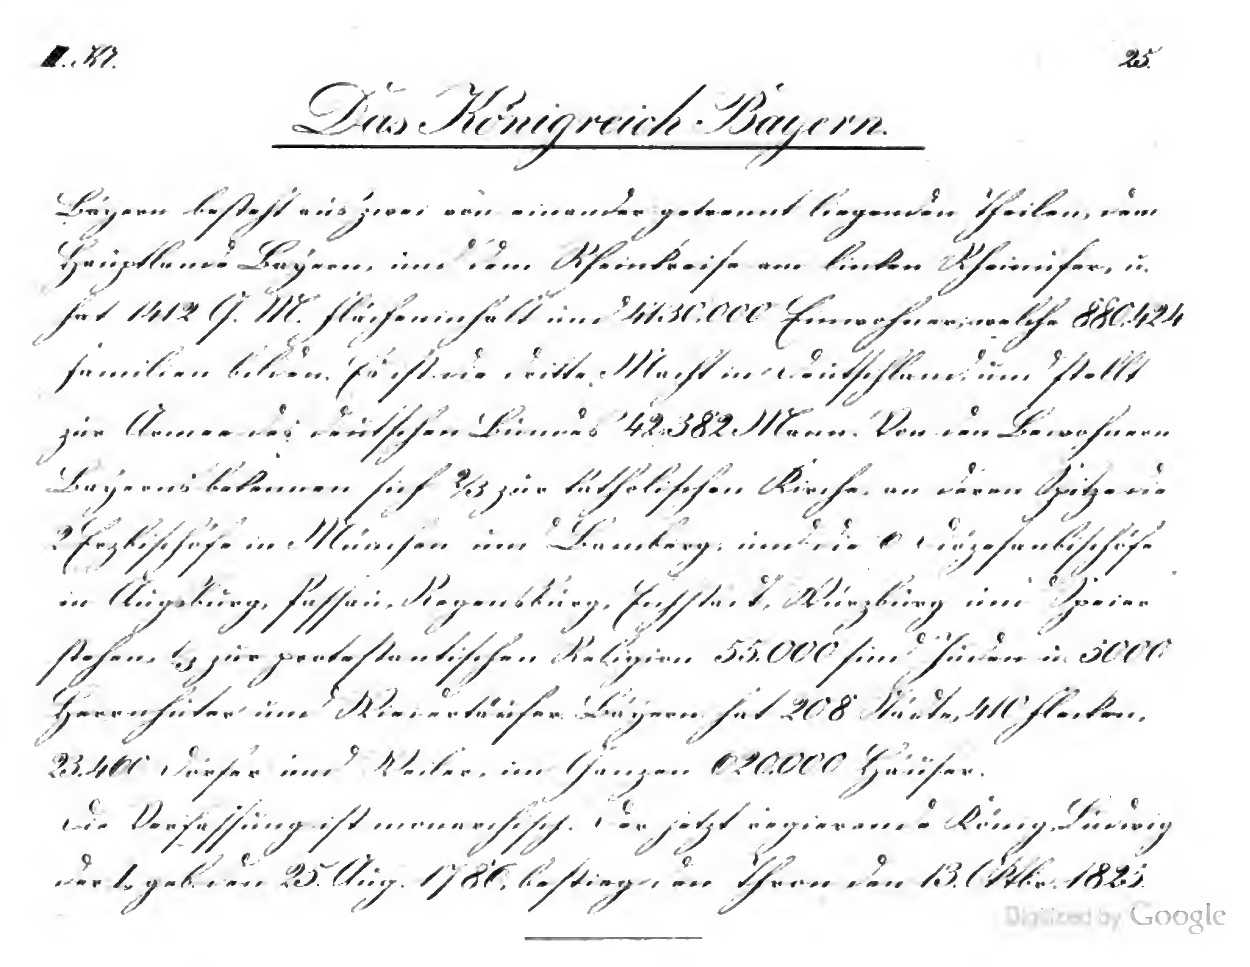 II. Kl.
25.
Das Königreich Bayern.
Bayern besteht aus zwei von einander getrennt liegenden Theilen, dem
Hauptlande Bayern, und dem Rheinkreise am linken Rheinufer, u.
hat 1412 Q. M. Flächeninhalt und 4130.000 Einwohner, welche 880.424
Familien bilden. Es ist die dritte Macht in Deutschland und stellt
zur Armee des deutschen Bundes 42.382 Mann. Von den Bewohnern
Bayerns bekennen sich 2/3 zur katholischen Kirche, an deren Spitze die
2 Erzbischöfe in München und Bamberg, und die 6 Diözesanbischöfe
in Augsburg, Passau, Regensburg, Eichstädt, Würzburg und Speier
stehen, 1/3 zur protestantischen Religion 55.000 sind Juden u. 5000
Herrnhuter und Wiedertäufer. Bayern hat 208 Städte, 410 Flecken,
23.460 Dörfer und Weiler, im Ganzen 620.000 Häuser.
Die Verfassung ist monarchisch. Der jetzt regierende König, Ludwig
der I. geb. den 25. Aug. 1786, bestieg den Thron den 13. Oktbr. 1825.
Digitized by Google